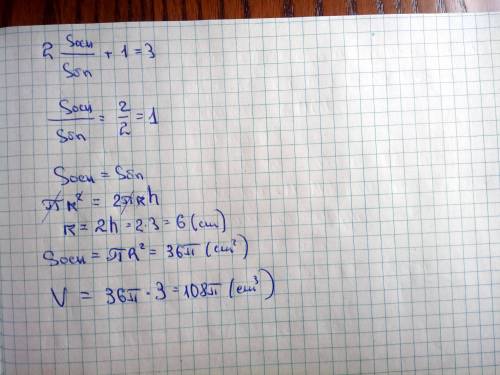 2 Sосн/Sбп + 1 = 3
Sосн/Sбп = 2/2 = 1
Sосн = Sбп
πR² = 2πRh
R = 2h = 2·3 = 6 (см)
Sосн = πR² = 36π (см²)
V = 36π · 3 = 108π (см³)